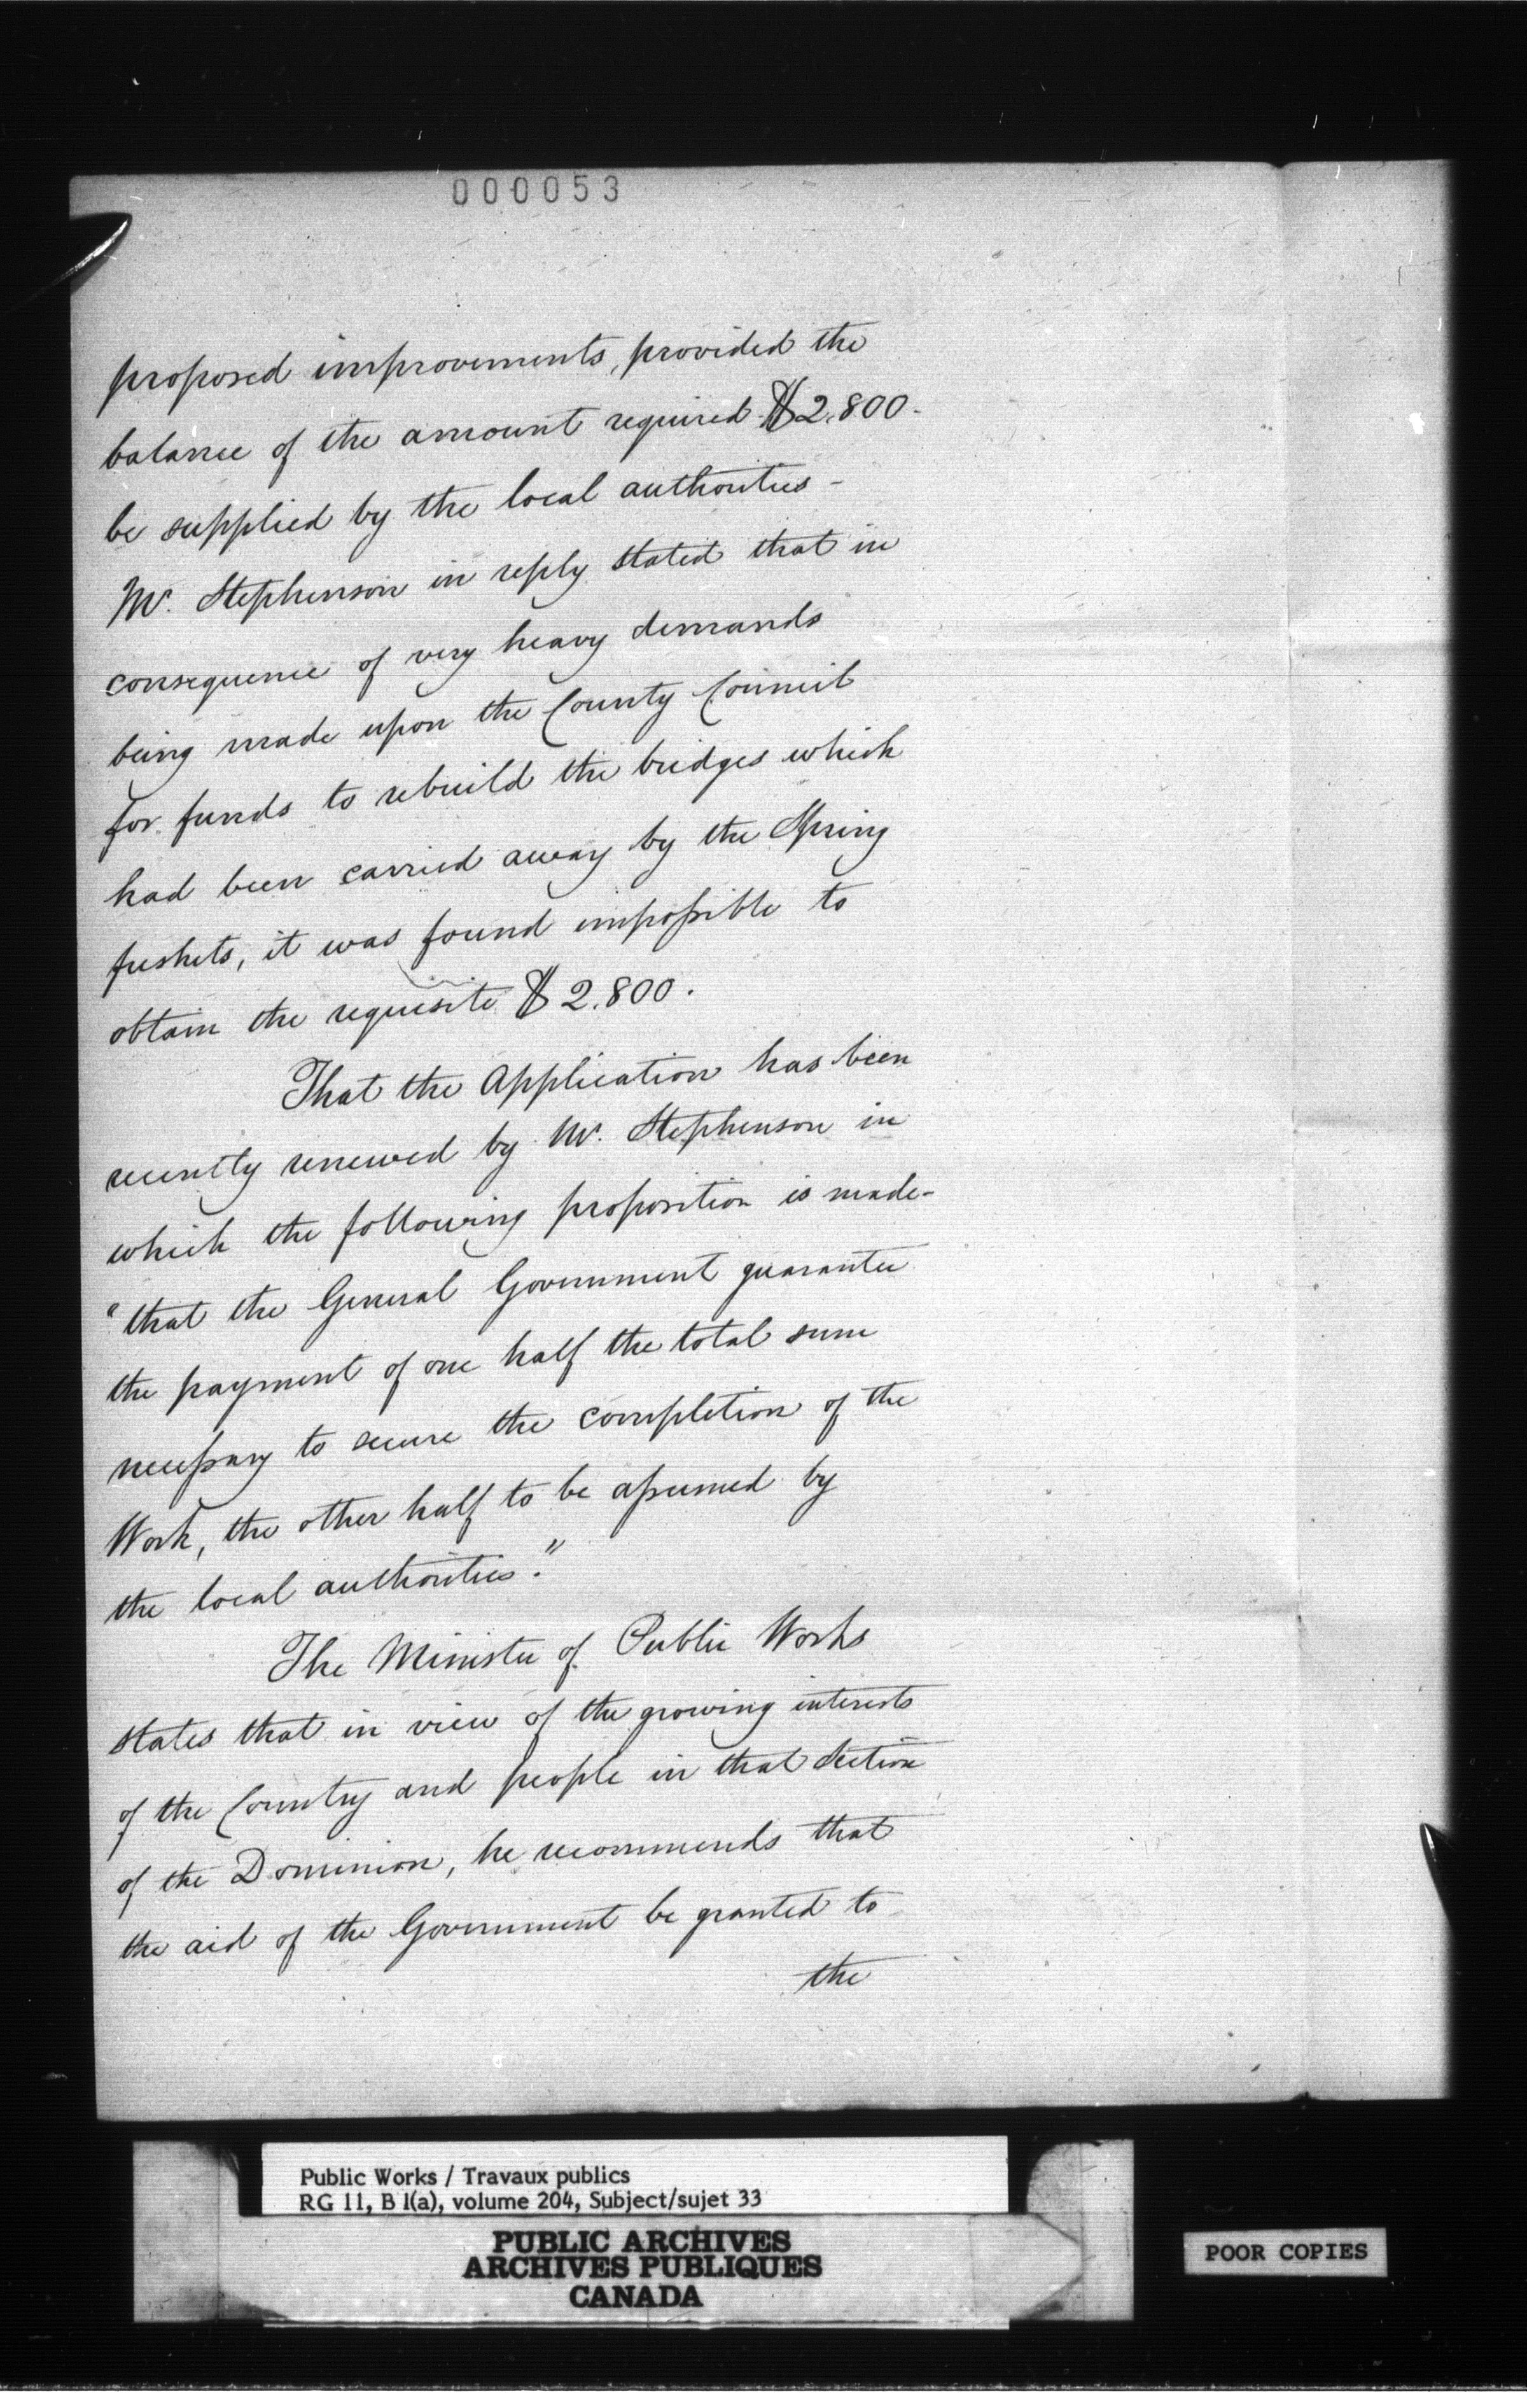 000053
proposed improvements, provided the
balance of the amount required $2.800.
be supplied by the local authorities -
Mr. Stephenson in reply stated that in
consequence of very heavy demands
being made upon the County Council
for funds to rebuild the bridges which
had been carried away by the Spring
freshets, it was found impossible to
obtain the requisite $2.800.
That the Application has been
recently renewed by Mr. Stephenson in
which the following proposition is made-
"that the General Government guarantee
the payment of one half the total sum
necessary to secure the completion of the
Work, the other half to be assumed by
the local authorities."
The Minister of Public Works
states that in view of the growing interests
of the Country and people in that Section
of the Dominion, he recommends that
the aid of the Government be granted to
the
Public Works / Travaux publics
RG 11, B 1(a), volume 204, Subject/sujet 33
PUBLIC ARCHIVES
ARCHIVES PUBLIQUES
CANADA
POOR COPIES